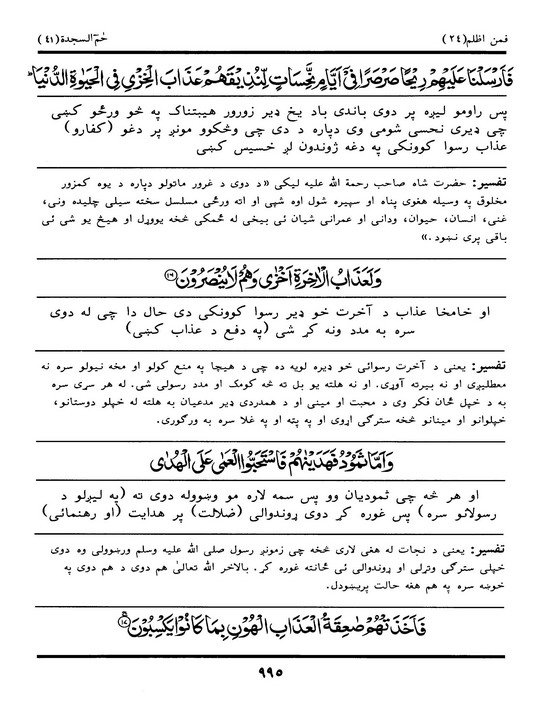 فمن اظلم(٢٤)
حٰم السجدة(٤١)
فَاَرْسَلْنَا عَلَيْهِمْ رِيْحًا صَرْصَرًا فِيْٓ اَيَّامٍ نَّحِسَاتٍ لِّنُذِيْقَهُمْ عَذَابَ الْخِزْيِ فِي الْحَيٰوةِ الدُّنْيَا ؕ
پس راومو ليږه پر دوی باندی باد يخ ډير زورور هيبتناک په څو ورځو کښی
چی ډيری نحسی شومی وی دپاره د دی چی وڅکوو مونږ پر دغو (کفارو)
عذاب رسوا کوونکی په دغه ژوندون لږ خسيس کښی
تفسير: حضرت شاه صاحب رحمة الله عليه ليکی «د دوی د غرور ماتولو دپاره د يوه کمزور
مخلوق په وسيله هغوی پناه او سپيره شول اوه شپی او اته ورځی مسلسل سخته سيلی چليده ونی،
غنی، انسان، حيوان، ودانی او عمرانی شيان ئی بيخی له ځمکی څخه يووړل او هيڅ يو شی ئی
باقی پری نښود.»
وَلَعَذَابُ الْاٰخِرَةِ اَخْزٰى وَهُمْ لَا يُنْصَرُوْنَ ﴿١٦﴾
او خامخا عذاب د آخرت خو ډير رسوا کوونکی دی حال دا چی له دوی
سره به مدد ونه کړ شی (په دفع د عذاب کښی)
تفسير: يعنی د آخرت رسوائی خو ډيره لويه ده چی د هيچا په منع کولو او مخه نيولو سره نه
معطليږی او نه بيرته آوړی. او نه هلته يو بل ته څه کومک او مدد رسولی شی. له هر سړی سره
به د خپل ځان فکر وی د محبت او مينی او د همدردی ډير مدعيان به هلته له خپلو دوستانو،
خپلوانو او مينانو څخه سترګی اړوی او په پته او په غلا سره به ورګوری.
وَاَمَّا ثَمُوْدُ فَهَدَيْنٰهُمْ فَاسْتَحَبُّوا الْعَمٰى عَلَى الْهُدٰى
او هر څه چی ثموديان وو پس سمه لاره مو وښووله دوی ته (په ليږلو د
رسولانو سره) پس غوره کړ دوی ړوندوالی (ضلالت) پر هدايت (او رهنمائی)
تفسير: يعنی د نجات له هغی لاری څخه چی زمونږ رسول صلی الله عليه وسلم ورښوولی وه دوی
خپلی سترګی وتړلی او ړوندوالی ئی ځانته غوره کړ. بالاخر الله تعالیٰ هم دوی د هم دوی په
خوښه سره په هم هغه حالت پريښودل.
فَاَخَذَتْهُمْ صٰعِقَةُ الْعَذَابِ الْهُوْنِ بِمَا كَانُوْا يَكْسِبُوْنَ ﴿١٧﴾
٩٩٥